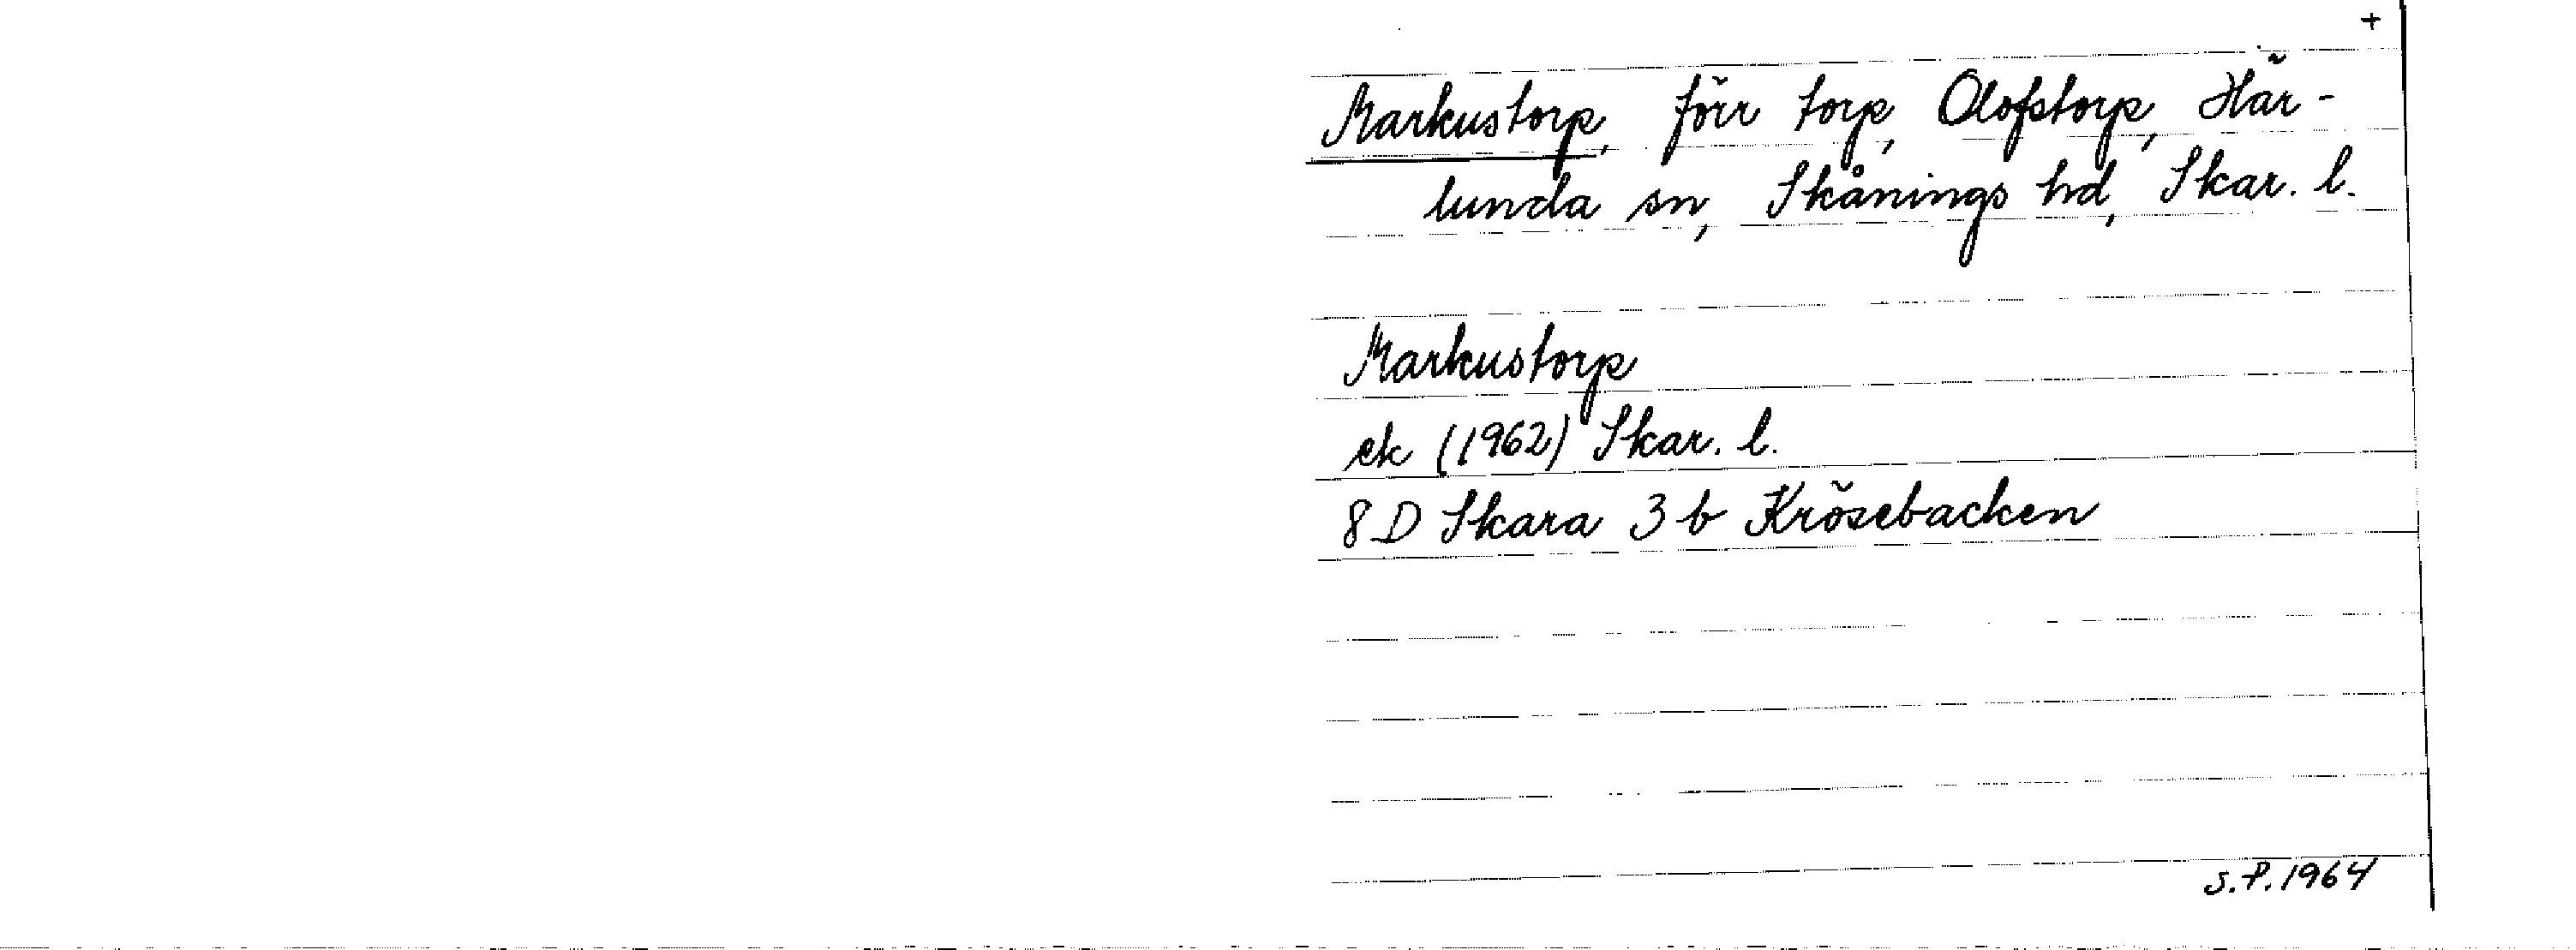 +
Markustorp, förr torp, Olofstorp, Här-
lunda sn, Skånings hd, Skar. l.
Markustorp
ek (1962) Skar. l.
8 D Skara 3 b Krösebacken
S.P. 1964